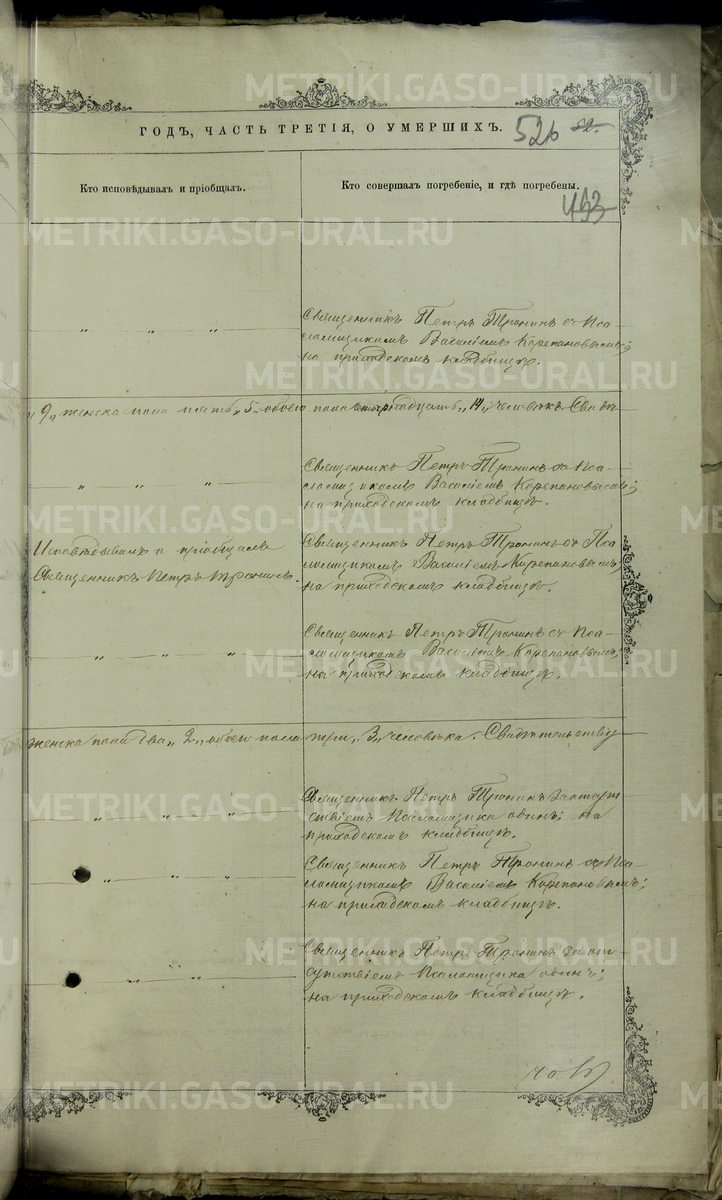 ГОДЪ, ЧАСТЬ ТРЕТІЯ, О УМЕРШИХЪ.
526 52.
Кто исповѣдывалъ и пріобщалъ.
Кто совершалъ погребеніе, и гдѣ погребены.
493
Священникъ Петръ Тронинъ съ Пса-
ломщикомъ Василіемъ Корепановымъ;
на приходскомъ кладбищѣ.
„ 9„ женска пола пять „5„ обоего пола четырнадцать „14„ человѣкъ. Свидѣ
Священникъ Петръ Тронинъ съ Пса-
ломщикомъ Василіемъ Корепановымъ;
на приходскомъ кладбищѣ.
Исповѣдывалъ и пріобщалъ
Священникъ Петръ Тронинъ.
Священникъ Петръ Тронинъ съ Пса
ломщикомъ Василіемъ Корепановымъ;
на приходскомъ кладбищѣ.
Священникъ Петръ Тронинъ съ Пса-
ломщикомъ Василіемъ Корепановымъ;
на приходскомъ кладбищѣ.
женска пола два „2„ обоего пола три „3„ человѣка. Свидѣтельству
Священникъ Петръ Тронинъ за отсут
ствіемъ Псаломщика одинъ; на
приходскомъ кладбищѣ.
Священникъ Петръ Тронинъ съ Пса
ломщикомъ Василіемъ Корепановымъ;
на приходскомъ кладбищѣ.
Священникъ Петръ Тронинъ за от
сутствіемъ Псаломщика одинъ;
на приходскомъ кладбищѣ.
METRIKI.GASO-URAL.RU